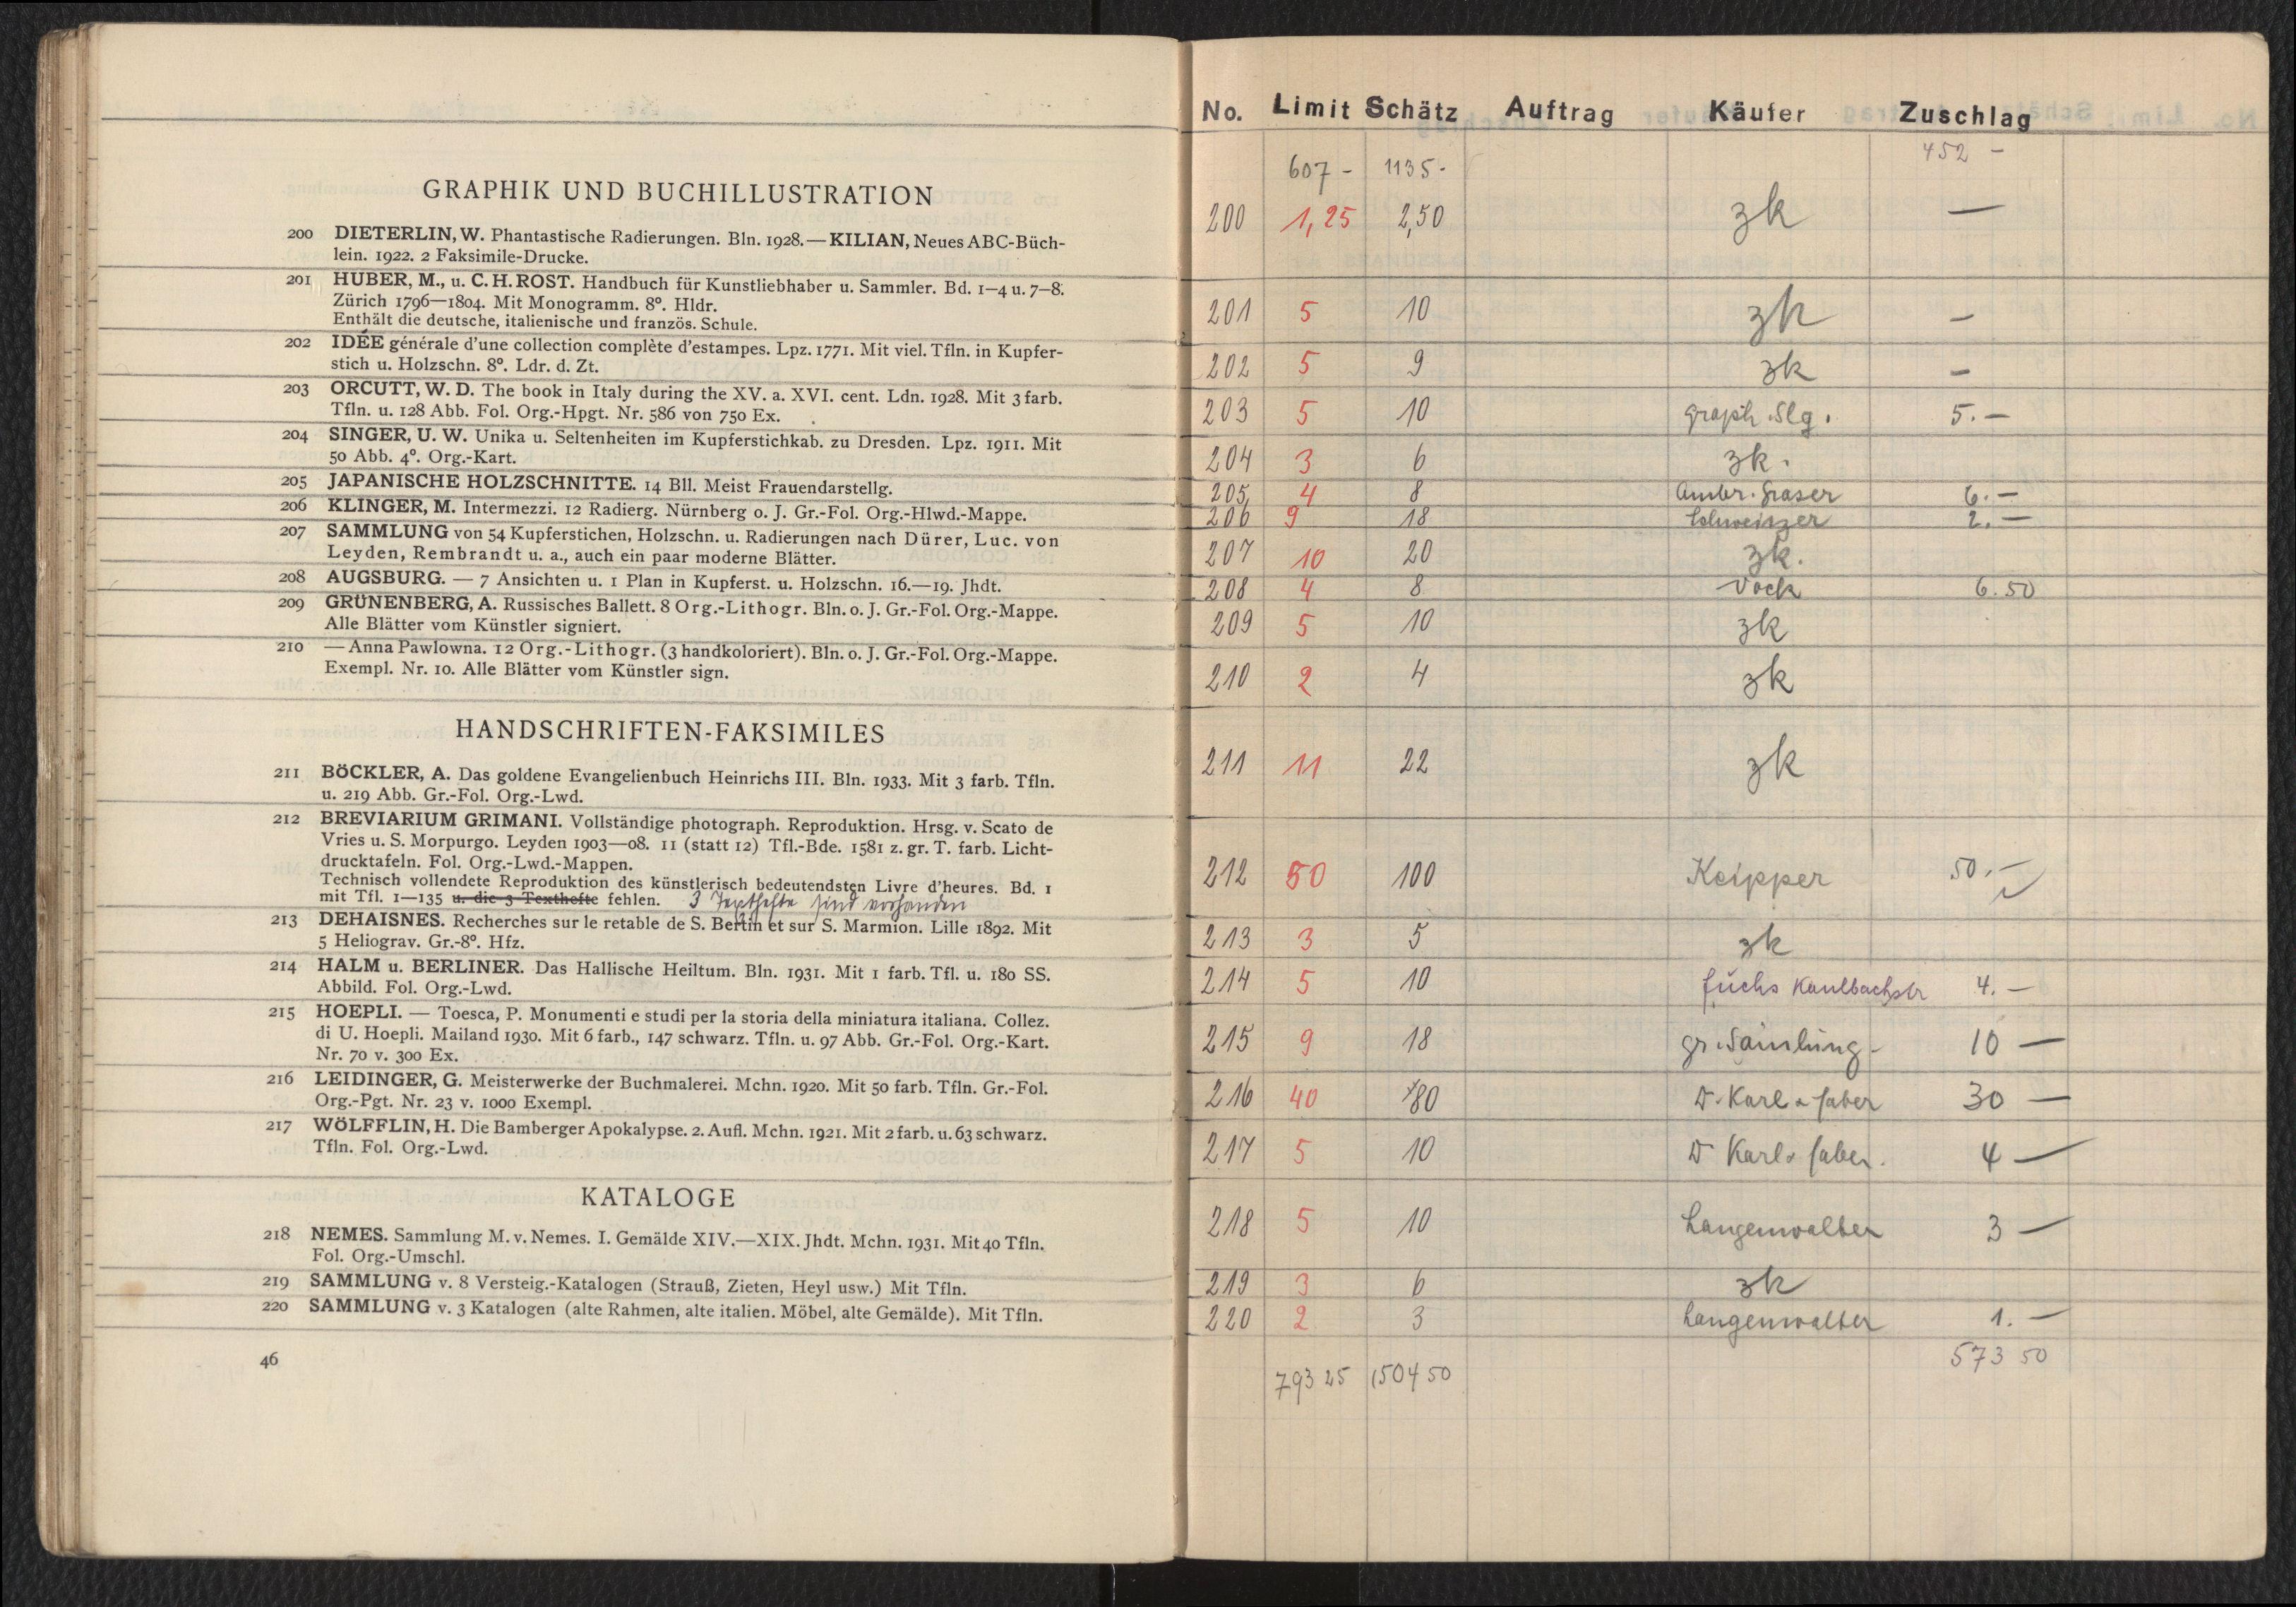 GRAPHIK UND BUCHILLUSTRATION
200 DIETERLIN, W. Phantastische Radierungen. Bln. 1928. — KILIAN, Neues ABC-Büch-
lein. 1922. 2 Faksimile-Drucke.
201 HUBER, M., u. C. H. ROST. Handbuch für Kunstliebhaber u. Sammler. Bd. 1—4 u. 7—8.
Zürich 1796—1804. Mit Monogramm. 8°. Hldr.
Enthält die deutsche, italienische und französ. Schule.
202 IDÉE générale d'une collection complète d'estampes. Lpz. 1771. Mit viel. Tfln. in Kupfer-
stich u. Holzschn. 8°. Ldr. d. Zt.
203 ORCUTT, W. D. The book in Italy during the XV. a. XVI. cent. Ldn. 1928. Mit 3 farb.
Tfln. u. 128 Abb. Fol. Org.-Hpgt. Nr. 586 von 750 Ex.
204 SINGER, U. W. Unika u. Seltenheiten im Kupferstichkab. zu Dresden. Lpz. 1911. Mit
50 Abb. 4°. Org.-Kart.
205 JAPANISCHE HOLZSCHNITTE. 14 Bll. Meist Frauendarstellg.
206 KLINGER, M. Intermezzi. 12 Radierg. Nürnberg o. J. Gr.-Fol. Org.-Hlwd.-Mappe.
207 SAMMLUNG von 54 Kupferstichen, Holzschn. u. Radierungen nach Dürer, Luc. von
Leyden, Rembrandt u. a., auch ein paar moderne Blätter.
208 AUGSBURG. — 7 Ansichten u. 1 Plan in Kupferst. u. Holzschn. 16.—19. Jhdt.
209 GRÜNENBERG, A. Russisches Ballett. 8 Org.-Lithogr. Bln. o. J. Gr.-Fol. Org.-Mappe.
Alle Blätter vom Künstler signiert.
210 — Anna Pawlowna. 12 Org.-Lithogr. (3 handkoloriert). Bln. o. J. Gr.-Fol. Org.-Mappe.
Exempl. Nr. 10. Alle Blätter vom Künstler sign.
HANDSCHRIFTEN-FAKSIMILES
211 BÖCKLER, A. Das goldene Evangelienbuch Heinrichs III. Bln. 1933. Mit 3 farb. Tfln.
u. 219 Abb. Gr.-Fol. Org.-Lwd.
212 BREVIARIUM GRIMANI. Vollständige photograph. Reproduktion. Hrsg. v. Scato de
Vries u. S. Morpurgo. Leyden 1903—08. 11 (statt 12) Tfl.-Bde. 1581 z. gr. T. farb. Licht-
drucktafeln. Fol. Org.-Lwd.-Mappen.
Technisch vollendete Reproduktion des künstlerisch bedeutendsten Livre d'heures. Bd. 1
mit Tfl. 1—135 u. die 3 Texthefte fehlen. 3 Texthefte sind vorhanden
213 DEHAISNES. Recherches sur le retable de S. Bertin et sur S. Marmion. Lille 1892. Mit
5 Heliograv. Gr.-8°. Hfz.
214 HALM u. BERLINER. Das Hallische Heiltum. Bln. 1931. Mit 1 farb. Tfl. u. 180 SS.
Abbild. Fol. Org.-Lwd.
215 HOEPLI. — Toesca, P. Monumenti e studi per la storia della miniatura italiana. Collez.
di U. Hoepli. Mailand 1930. Mit 6 farb., 147 schwarz. Tfln. u. 97 Abb. Gr.-Fol. Org.-Kart.
Nr. 70 v. 300 Ex.
216 LEIDINGER, G. Meisterwerke der Buchmalerei. Mchn. 1920. Mit 50 farb. Tfln. Gr.-Fol.
Org.-Pgt. Nr. 23 v. 1000 Exempl.
217 WÖLFFLIN, H. Die Bamberger Apokalypse. 2. Aufl. Mchn. 1921. Mit 2 farb. u. 63 schwarz.
Tfln. Fol. Org.-Lwd.
KATALOGE
218 NEMES. Sammlung M. v. Nemes. I. Gemälde XIV.—XIX. Jhdt. Mchn. 1931. Mit 40 Tfln.
Fol. Org.-Umschl.
219 SAMMLUNG v. 8 Versteig.-Katalogen (Strauß, Zieten, Heyl usw.) Mit Tfln.
220 SAMMLUNG v. 3 Katalogen (alte Rahmen, alte italien. Möbel, alte Gemälde). Mit Tfln.
46
No. Limit Schätz Auftrag Käufer Zuschlag
607 - 1135 - 452 -
200 1,25 2,50 zk —
201 5 10 zk —
202 5 9 zk —
203 5 10 graph. Slg. 5. —
204 3 6 zk.
205 4 8 Ambr. Graser 6. —
206 9 18 Schweiszer 2. —
207 10 20 zk.
208 4 8 Vock 6.50
209 5 10 zk
210 2 4 zk
211 11 22 zk
212 50 100 Keipper 50. —
213 3 5 zk
214 5 10 Fuchs Kaulbachstr 4. —
215 9 18 gr. Sammlung - 10 —
216 40 80 Dr. Karl & Faber 30 —
217 5 10 Dr Karl & Faber. 4 —
218 5 10 Langenwalter 3 —
219 3 6 zk
220 2 3 Langenwalter 1. —
793 25 1504 50 573 50